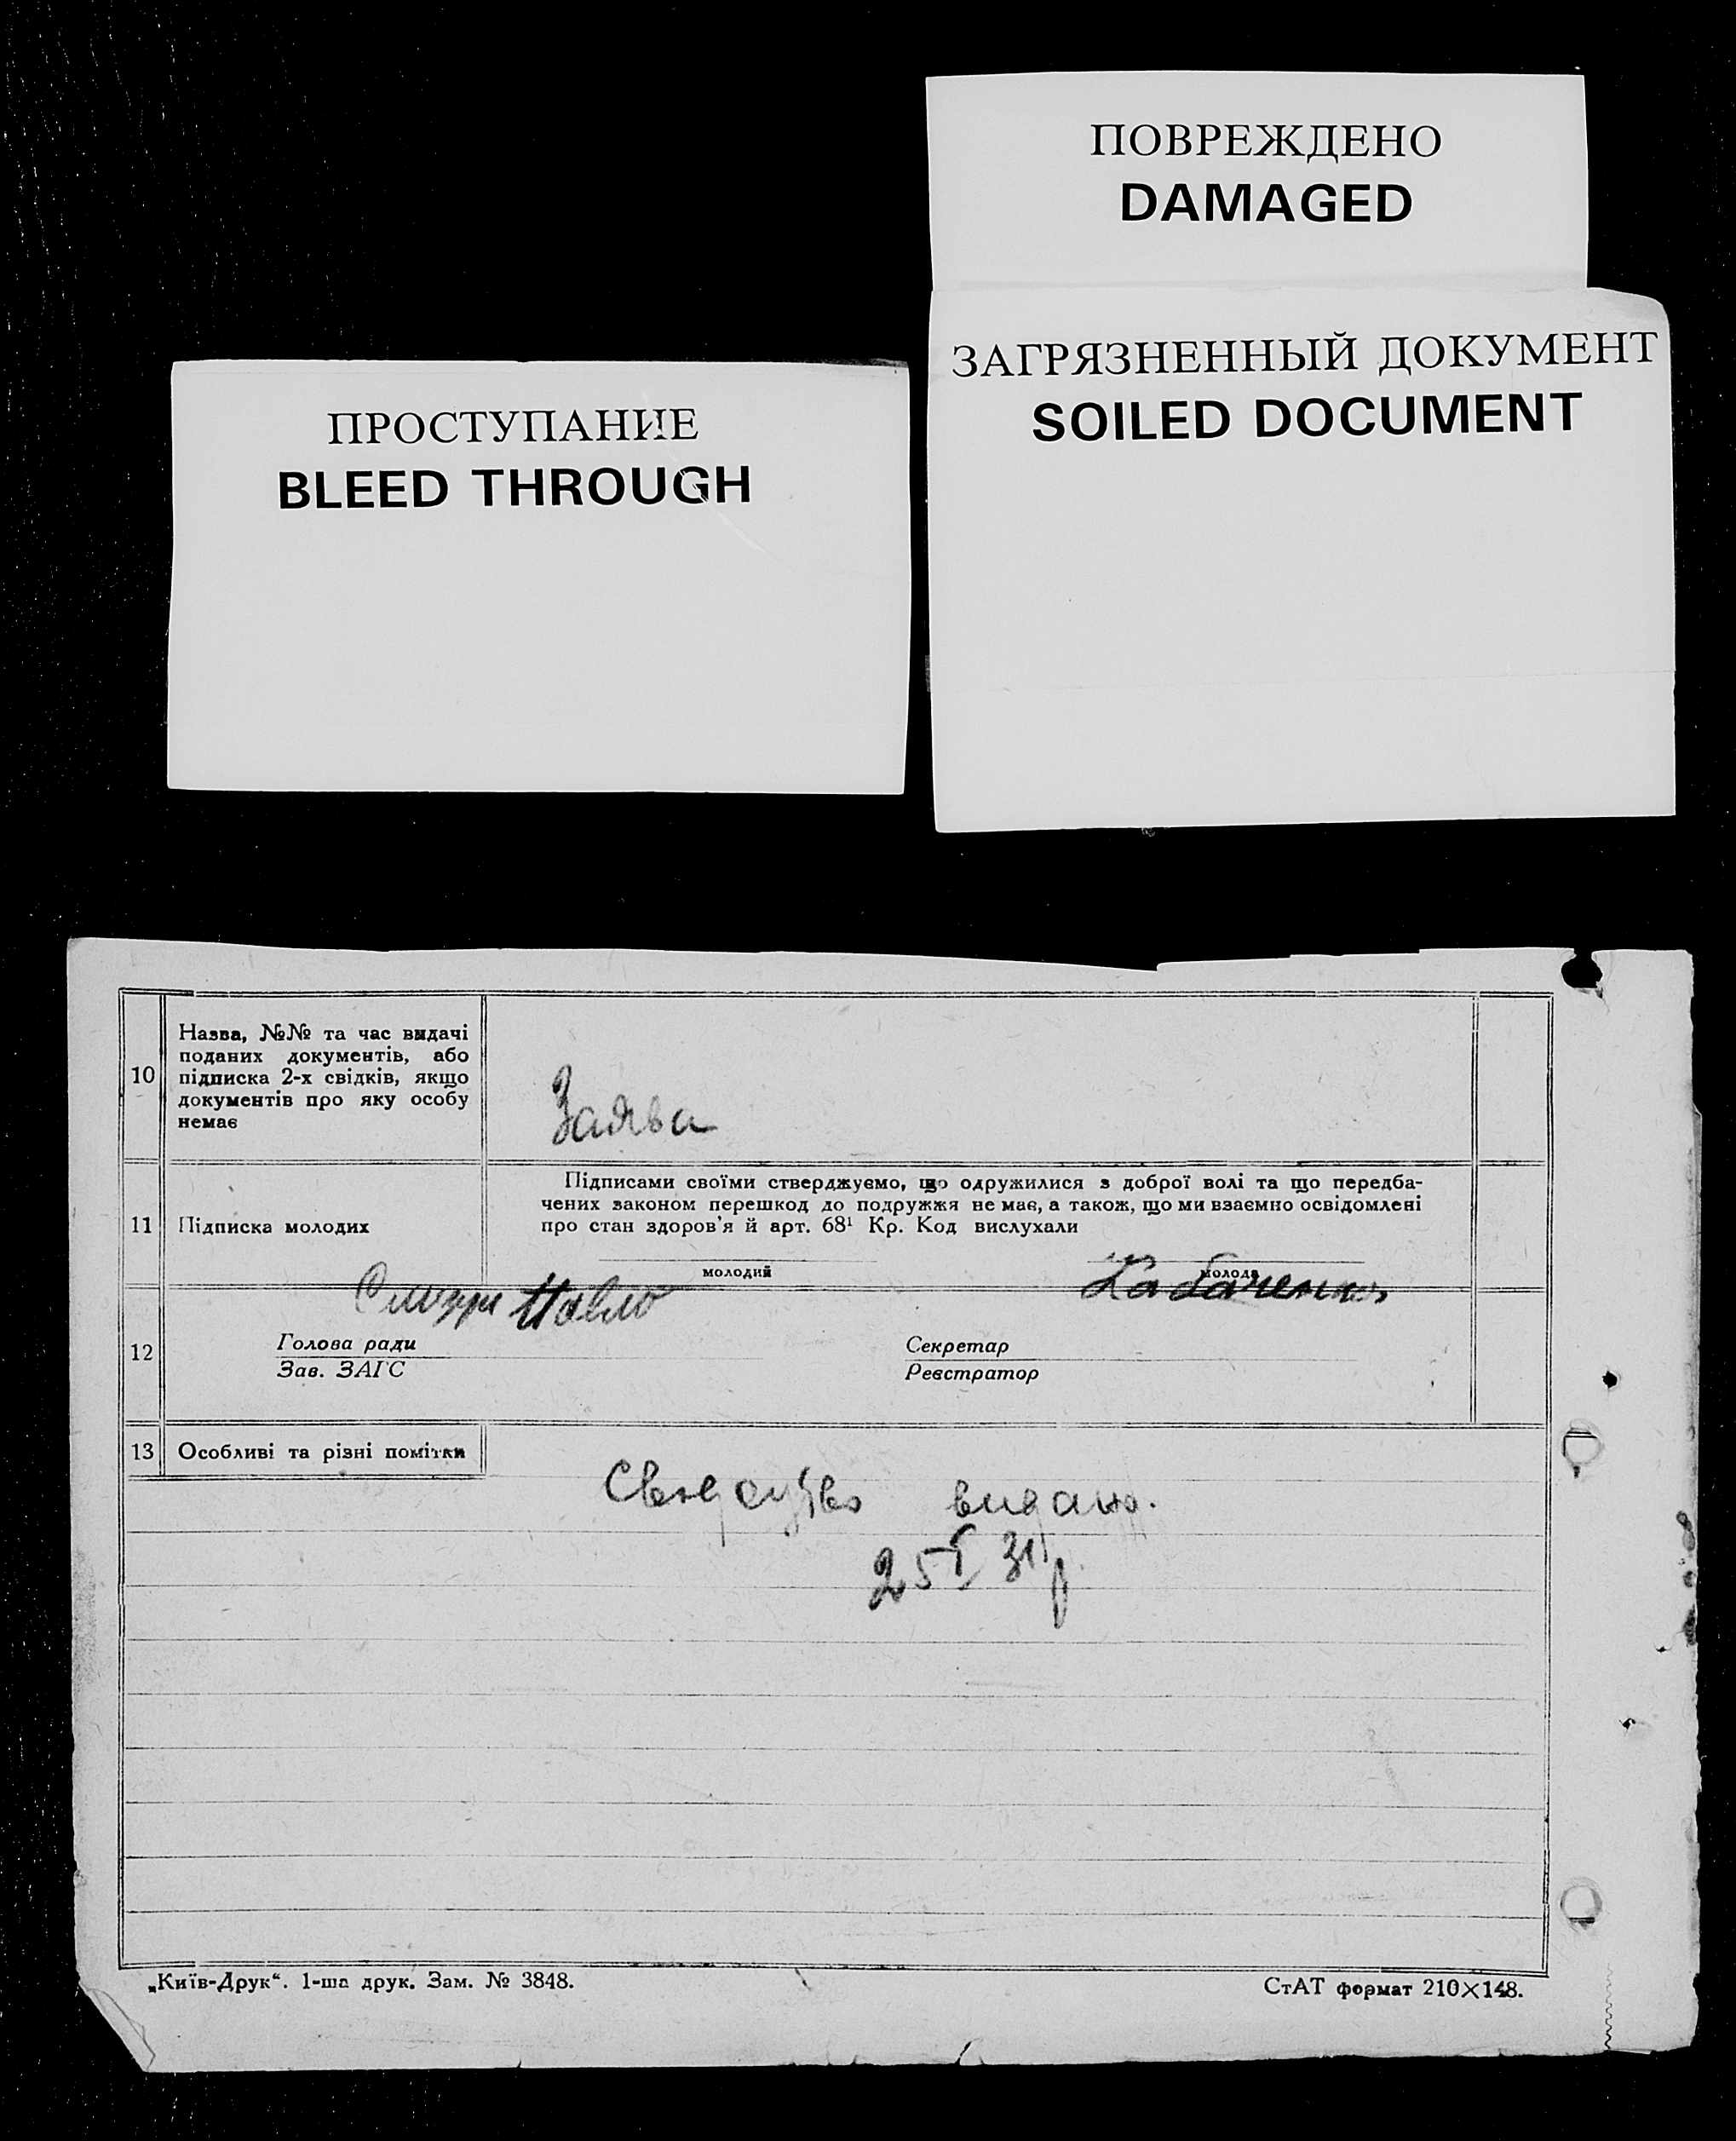 ПОВРЕЖДЕНО
DAMAGED
ЗАГРЯЗНЕННЫЙ ДОКУМЕНТ
SOILED DOCUMENT
ПРОСТУПАНИЕ
BLEED THROUGH
10
Назва, №№ та час видачі
поданих документів, або
підписка 2-х свідків, якщо
документів про яку особу
немає
Заява
11
Підписка молодих
Підписами своїми стверджуємо, що одружилися з доброї волі та що передба-
чених законом перешкод до подружжя не має, а також, що ми взаємно освідомлені
про стан здоров'я й арт. 68¹ Кр. Код вислухали
молодий
молода
Павло
12
Голова ради
Зав. ЗАГС
Секретар
Реєстратор
13
Особливі та різні помітки
видано.
25 I 31 р
„Київ-Друк“. 1-ша друк. Зам. № 3848.
СтАТ формат 210×148.